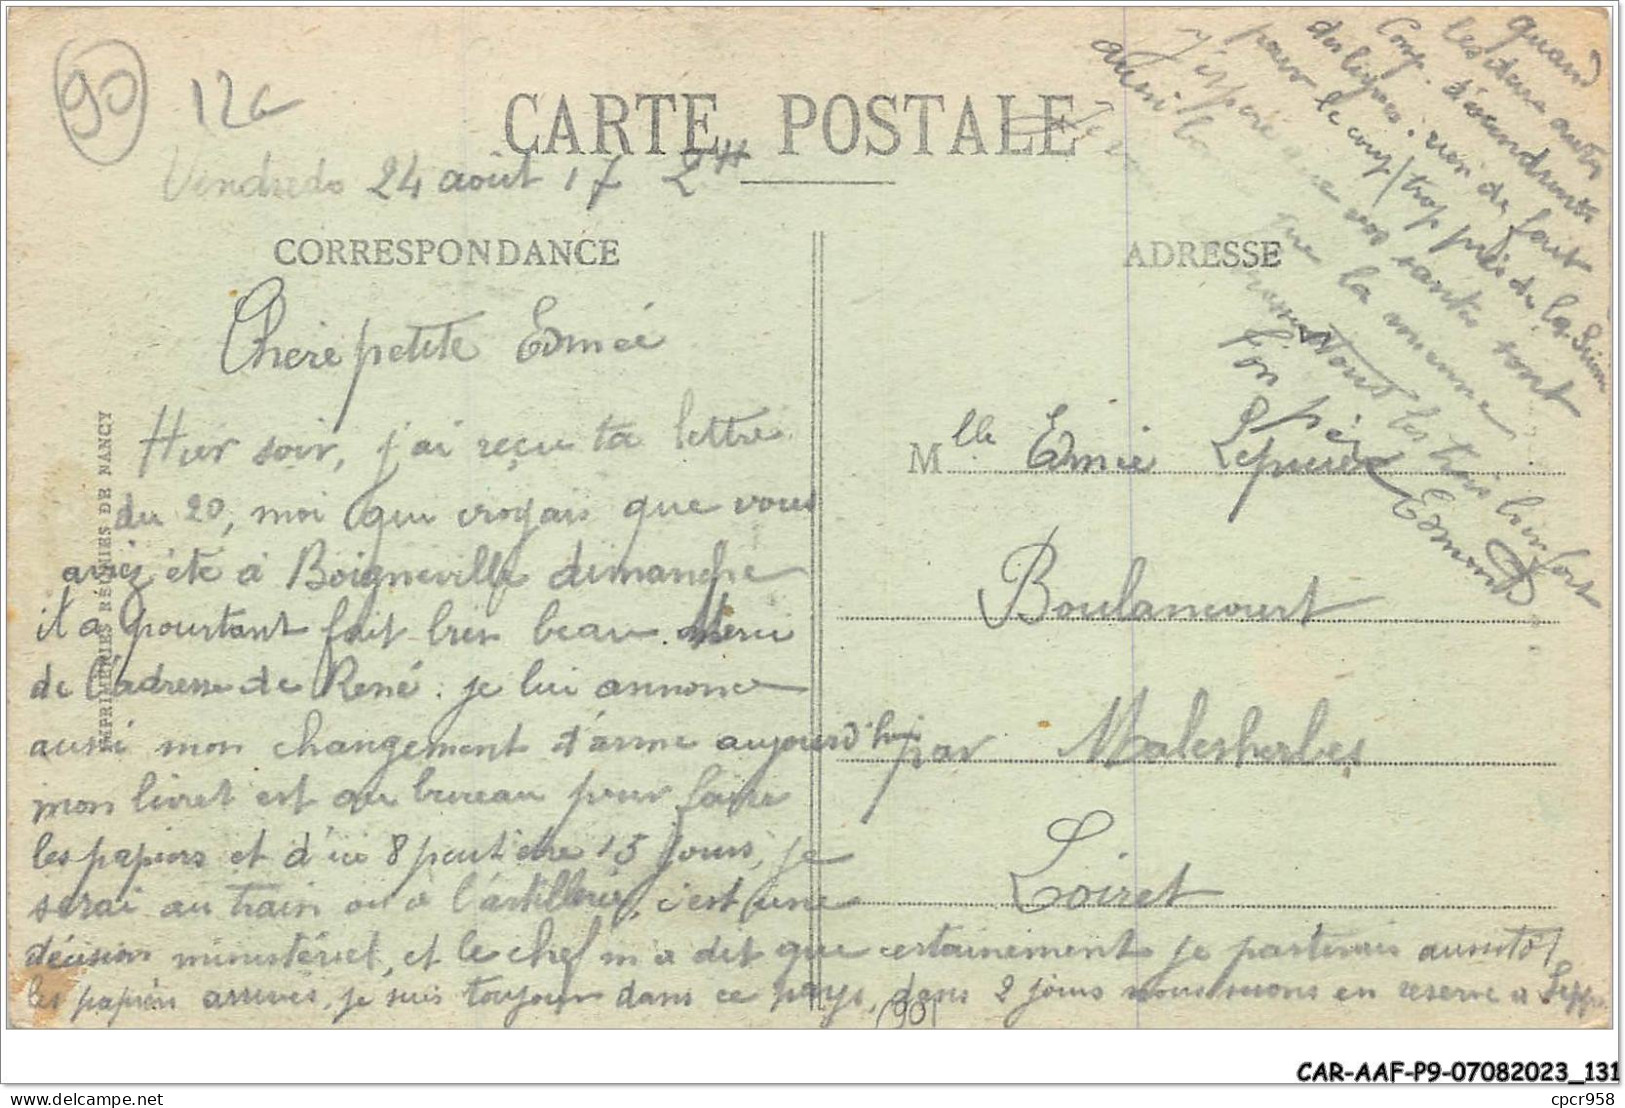 90
12c
CARTE POSTALE
Vendredi 24 août 17 2H
CORRESPONDANCE
ADRESSE
Chère petite Edmée
Hier soir, j'ai reçu ta lettre
du 20, moi qui croyais que vous
aviez été à Boigneville dimanche
il a pourtant fait bien beau. Merci
de l'adresse de René. je lui annonce
aussi mon changement d'arme aujourd'hui
mon livret est au bureau pour faire
les papiers et d'ici 8 peut être 15 jours, je
serai au train ou à l'artillerie, c'est une
décision ministériel, et le chef m'a dit que certainement je partirais aussitôt
les papiers arrivés, je suis toujours dans ce pays, dans 2 jours nous irons en reserve à
quand
les deux autres
Comp. descendront
des lignes. rien de fait
pour le coup/trop près de la
j'espère que vos santés sont
aussi que la mienne
Tous les trois bien fort
Ton père Edmond
Mlle Edmée
Boulancourt
par Malesherbes
Loiret
IMPRIMERIES RÉUNIES DE NANCY
(90)
CAR-AAF-P9-07082023_131
cpcr958